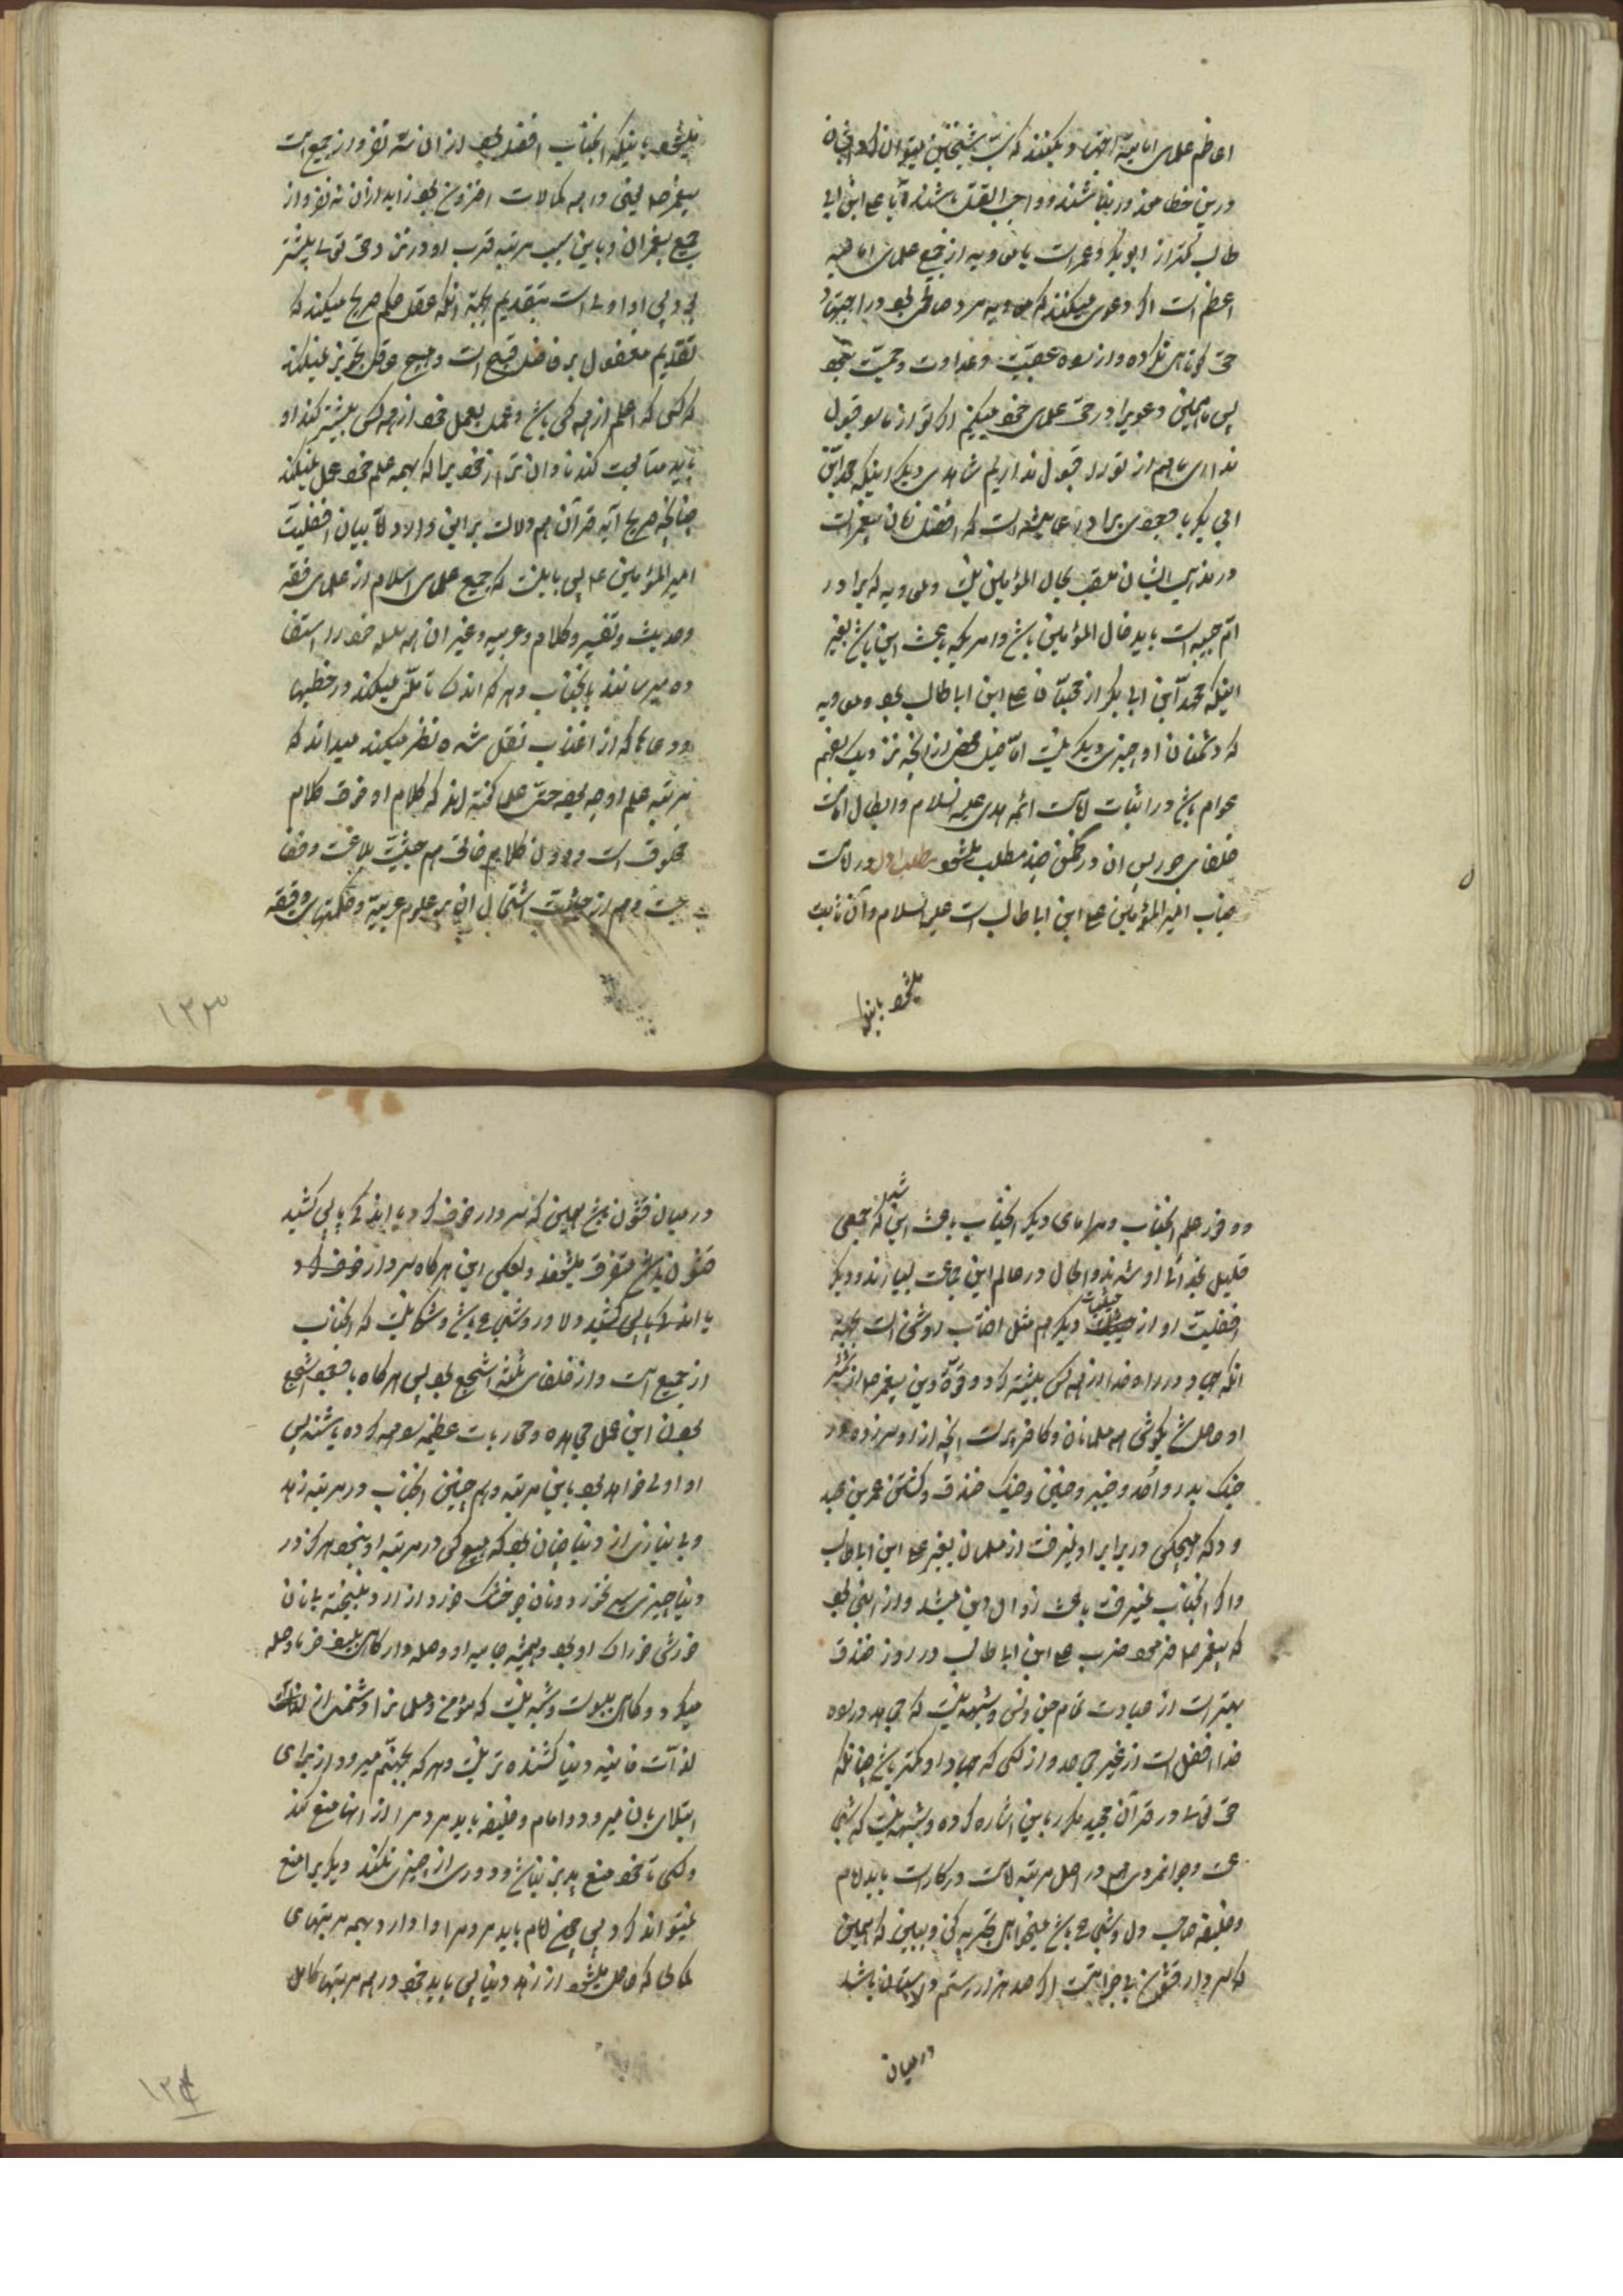 اعاظم علمای امامیه اجتهاد میکنند که سب شیخین میتوان کرد
درین خطا معذور نباشند و واجب القتل باشند آیا علی ابن ابی
طالب کمتر از ابو بکر و عمر است یا معاویه از جمیع علمای امامیه
اعظم است اگر دعوی میکنند که معاویه مرد صالحی بود در اجتهاد
حق کوتاهی نکرده و از راه عصبیت و عداوت و حمیت نبود
پس ما همین دعوی را در حق علمای خود میکنیم اگر تو از ما قبول
نداری ما هم از تو قبول نداریم شاهدی دیگر اینکه محمد ابن
ابی بکر با وجودی برادر عایشه است که افضل زنان پیغمبر است
در مذهب ایشان ملقب بخال المؤمنین نیست و معاویه که برادر
ام حبیبه است باید خال المؤمنین باشد و امریکه باعث این باشد بغیر
اینکه محمد ابن ابی بکر از محبان علی ابن ابا طالب بود و معاویه
که دشمنان او چیزی دیگر نیست
عوام باشد در اثبات امامت ائمه هدی علیهم السلام و ابطال امامت
خلفای جور پس آن در ضمن چند مطلب میشود مطلب اول در امامت
جناب امیر المؤمنین علی ابن ابا طالب است علیه السلام و آن ثابت
میشود باینکه
میشود باینکه آنجناب افضل بود از آن سه نفر و از جمیع امت
پیغمبر ص یعنی در همه کمالات افزون بود زاید از آن سه نفر و از
جمیع پیغمبران و باین سبب مرتبه قرب او در نزد حق تعالی بیشتر
بود پس او اولی است بتقدیم بجهة آنکه عقل حکم صریح میکند که
تقدیم مفضول بر فاضل قبیح است و هیچ عاقل تجویز نمیکند
که کسی که اعلم از همه کس باشد و عمل بعمل خود از همه کس بیشتر کند او
باید متابعت کند نادان تر از خود را که بهمه علم خود عمل نمیکند
چنانچه صریح آیه قرآن هم دلالت بر این دارد اما بیان افضلیت
امیر المؤمنین علی پس باینست که جمیع علمای اسلام از علمای فقه
و حدیث و تفسیر و کلام و عربیه و غیر آن همه سلسله خود را استفا
ده میرسانند بآنجناب و هر که اندک تأملی میکند در خطبها
و دعاها که از آنجناب نقل شده نظر میکند میداند که
مرتبه علم او چه بوده حتی علما گفته اند که کلام او فوق کلام
مخلوق است و دون کلام خالق هم حیثیت بلاغت و فصا
حت و هم از حیثیت اشتمال آن بر علوم عربیة و حکمتهای دقیقه
۱۲۳
و وفور علم آنجناب و هنرهای دیگر آنجناب باعث این شد که جمعی
قلیل بخدائی او شدند و الحال در عالم این جماعت بسیارند و دیگر
افضلیت او از حیثیات دیگر هم مثل آفتاب روشن است بجهة
آنکه جهاد در راه خدا از همه کس بیشتر کرد و قوة دین پیغمبر ص از شمشیر
او حاصل شد بگوش همه مسلمانان و کافر پر است آنچه از او سرزده در
جنگ بدر و احد و خیبر و حنین و جنگ خندق و کشتن عمر بن عبد
ود که هیچکس در برابر او نمیرفت از مسلمانان بغیر علی ابن ابا طالب
و اگر آنجناب نمیرفت باعث زوال دین میشد و از این بود
که پیغمبر ص فرمود ضرب علی ابن ابا طالب در روز خندق
بهتر است از عبادت تمام جن و انس و شبهه نیست که مجاهد در راه
خدا افضل است از غیر مجاهد و از کسی که جهاد او کمتر باشد چنانکه
حق تعالی در قرآن مجید مکرر باین اشاره کرده و شبهه نیست که شجا
عت و جوانمردی هم در اصل مرتبه امامت در کار است باید امام
و خلیفه صاحب دل و شجاع باشد میخواهی تجربه کن و ببین که همین
که سردار قشون بی جرأت است اگر صد هزار رستم در لشکر باشد
در میان
در میان قشون باشد همین که سردار خوف کرد یا اندکی پا پس کشید
قشون متفرق میشوند و بعکس این هرگاه سردار خوف نکرد
یا اندک پا پس نکشید و دلاور و شجاع باشد و شک نیست که آنجناب
از جمیع امت و از خلفای ثلثه اشجع بود پس هرگاه با وجود اشجع
بودن این عمل مجاهده و محاربات عظیمه را هم کرده باشند پس
او اولی خواهد بود باین مرتبه و هم چنین آنجناب در مرتبه زهد
و بی نیازی از دنیا چنان بود که هیچ کس در مرتبه او نبود هرگز در
دنیا چیزی سیر نخورد و نان جو خشک خورد از آرد نبیخته با نان
خورشی خوراک او بود و همیشه جامه او وصله دار گاهی بلیف خرما وصله
میکرد و گاهی بپوست و شبه نیست که مؤمن و مسلمان را دشمن تر از
لذات فانیه دنیا کشنده تر نیست و هر که بجهنم میرود از برای
ابتلای بآن میرود و امام و خلیفه باید مردم را از اینها منع کند
و کسی تا خود منع پذیر نباشد و دوری از چیزی نکند دیگری را منع
نمیتواند کرد پس چون امام باید مردم را وا دارد بهمه مرتبهای
کمالی که حاصل میشود از زهد دنیا پس باید خود در همه مرتبها کامل
۱۲۴